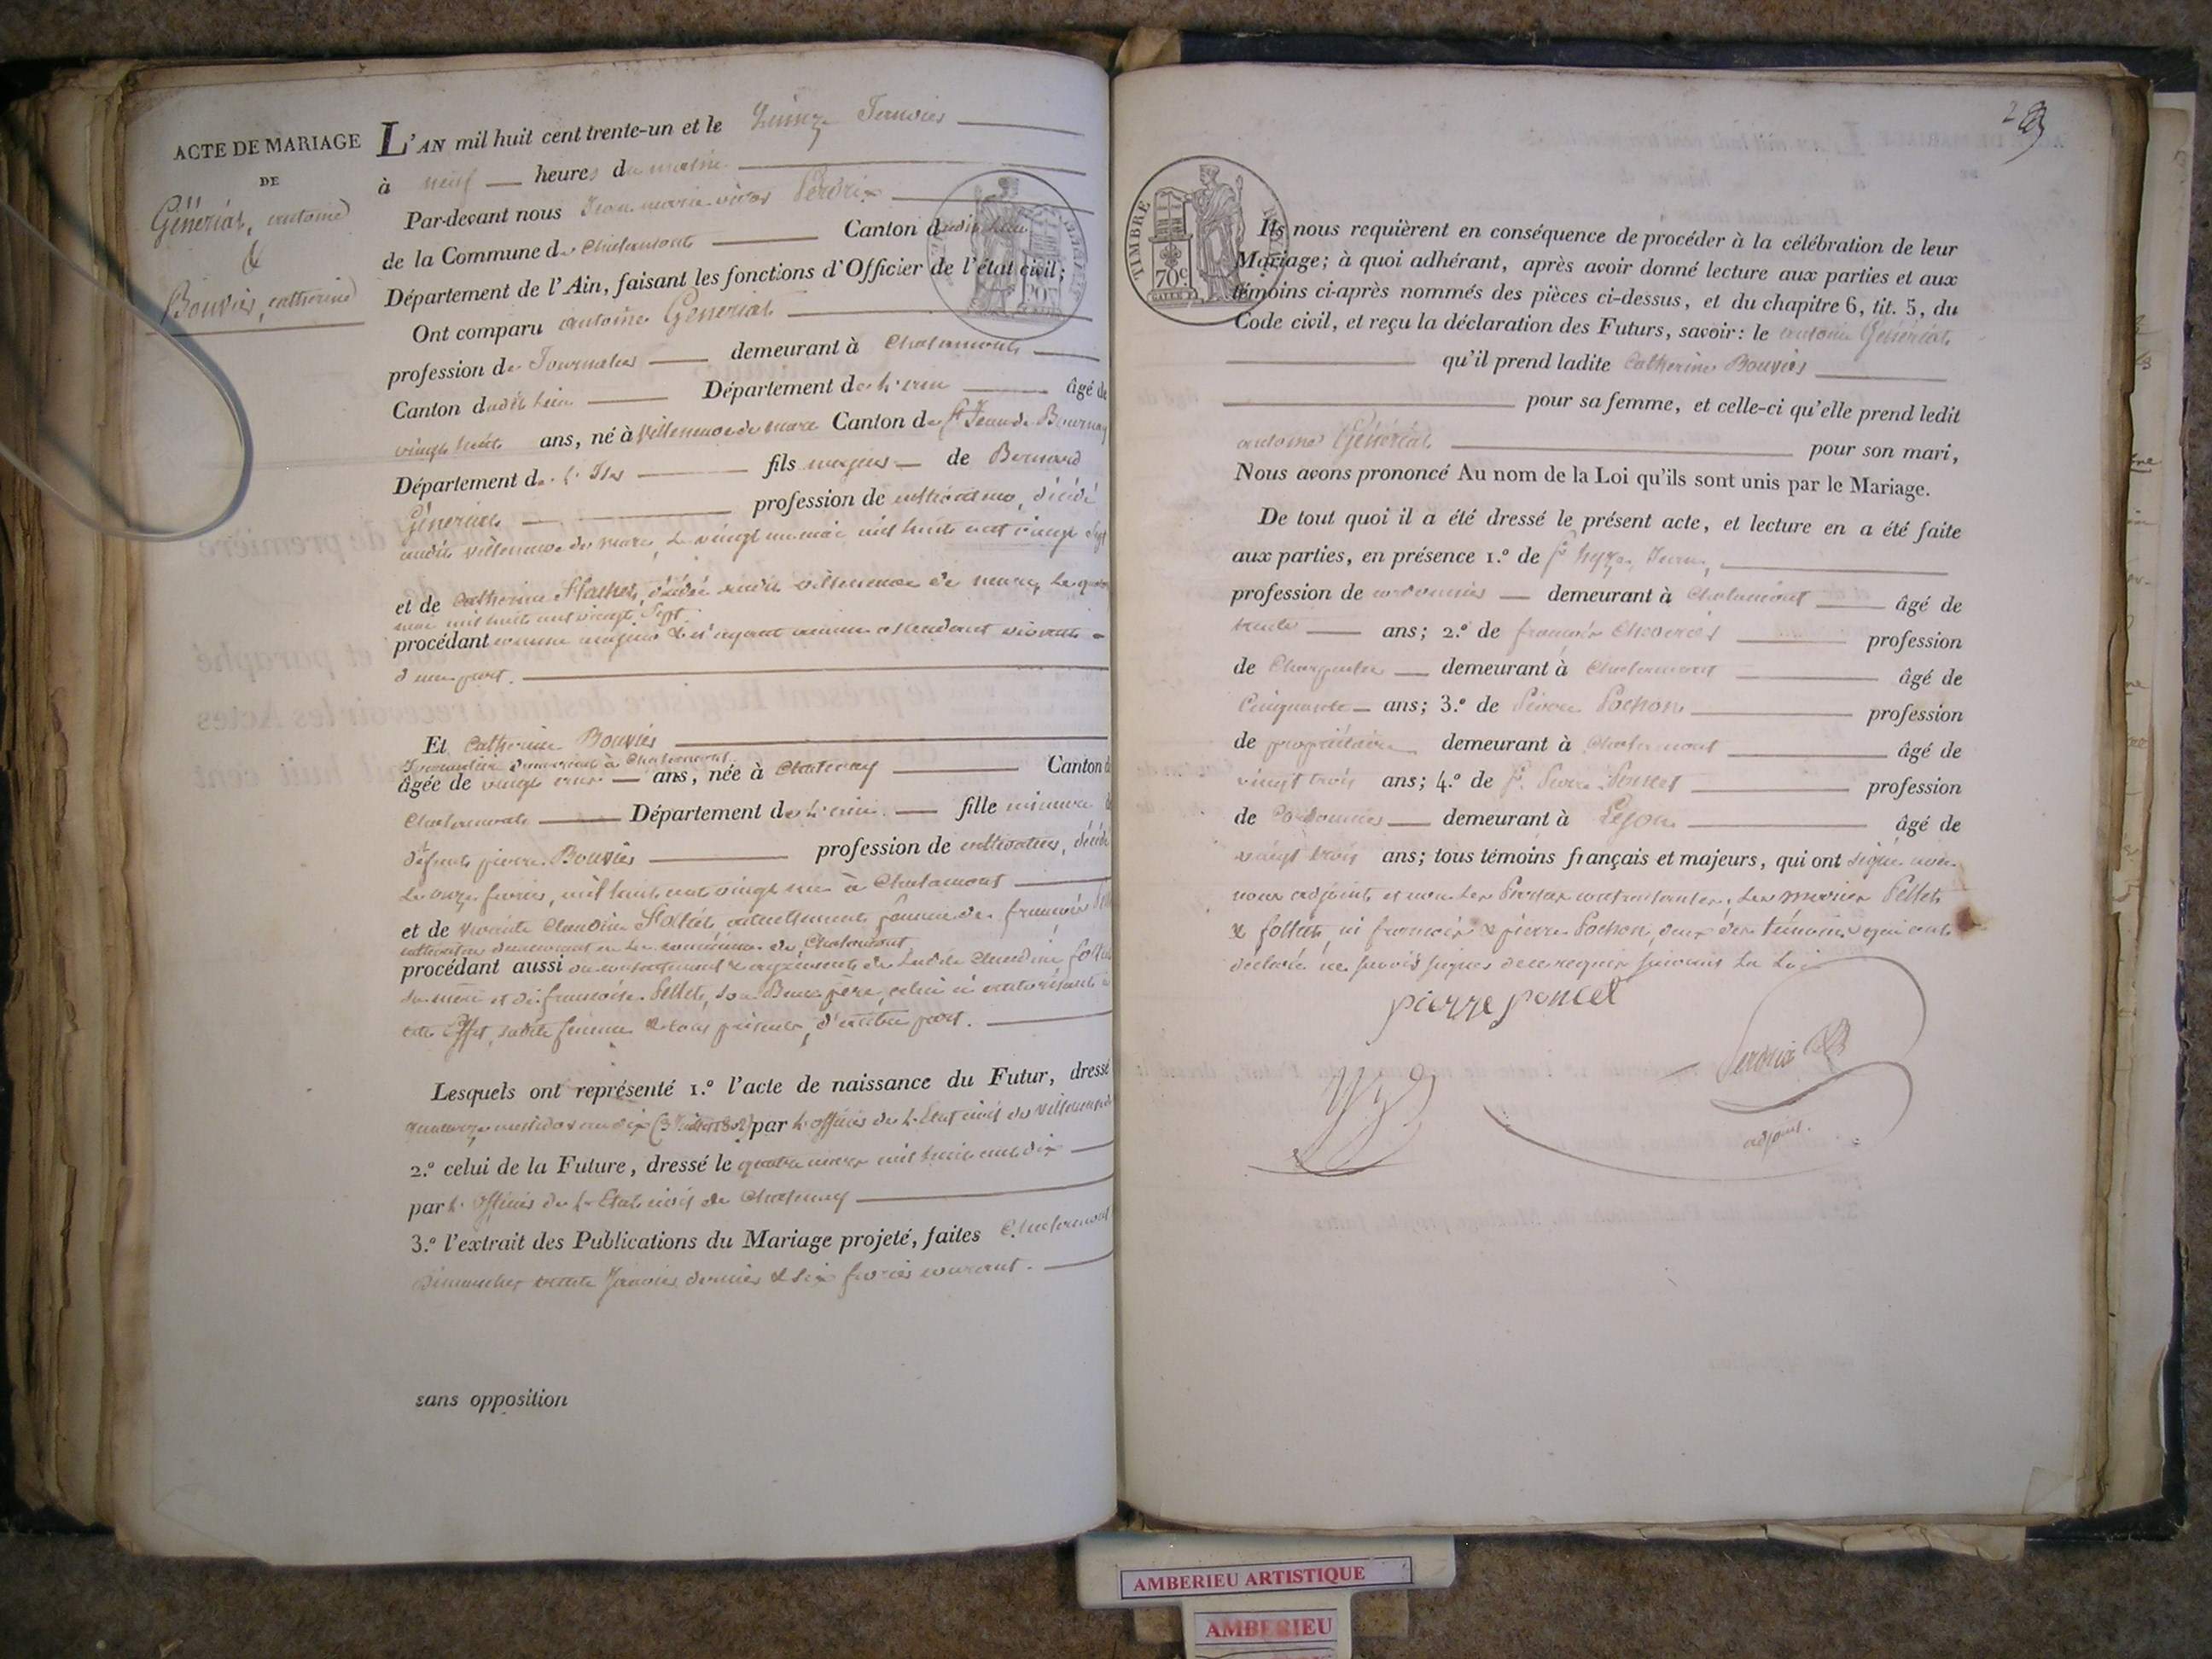 ACTE DE MARIAGE
DE
Générial, antoine
&
Bouvier, catherine
L'AN mil huit cent trente-un et le
à neuf heures du matin
Par-devant nous Jean marie Perdrix
de la Commune de Chalamont Canton dudit Lieu
Département de l'Ain, faisant les fonctions d'Officier de l'état civil;
Ont comparu antoine Génerial
profession de Journalier demeurant à Chalamont
Canton dudit Lieu Département de L'ain âgé de
vingt huit ans, né à Villeneuve de marc Canton de St Jean de Bournay
Département de L'Iser fils majeur de Bernard
Générial profession de cultivateur, décédé
audit Villeneuve de marc, Le vingt un mai mil huit cent vingt Sept
et de Catherine décédée audit villeneuve de marc, Le
mai mil huit cent vingt Sept
procédant comme majeur & n'ayant aucun ascendant vivant
d'une part.
Et Catherine Bouvier
demeurant à Chalamont
âgée de vingt ans, née à Chatenay Canton de
Chalamont Département de L'ain fille mineure de
défunt pierre Bouvier profession de cultivateur, décédé
Le onze fevrier, mil huit cent vingt un à Chalamont
et de vivante Claudine actuellement femme de françois
cultivateur demeurant en La commune de Chalamont
procédant aussi du consentement & agrément de Ladite Claudine
Sa mère et de françois Pellet, Son Beau père, celui ci autorisant à
cet Effet, Ladite femme & tous présents, d'autre part.
Lesquels ont représenté 1.º l'acte de naissance du Futur, dressé
quatorze messidor an dix par L'officier de L'Etat civil de Villeneuve
2.º celui de la Future, dressé le quatre mars mil huit cent dix
par L'officier de L'Etat civil de Chatenay
3.º l'extrait des Publications du Mariage projeté, faites Chalamont
Dimanches trente Janvier dernier & Six fevrier courant.
sans opposition
TIMBRE ROYAL
70c.
Ils nous requièrent en conséquence de procéder à la célébration de leur
Mariage; à quoi adhérant, après avoir donné lecture aux parties et aux
témoins ci-après nommés des pièces ci-dessus, et du chapitre 6, tit. 5, du
Code civil, et reçu la déclaration des Futurs, savoir: le antoine Générial
qu'il prend ladite Catherine Bouvier
pour sa femme, et celle-ci qu'elle prend ledit
antoine Générial pour son mari,
Nous avons prononcé Au nom de la Loi qu'ils sont unis par le Mariage.
De tout quoi il a été dressé le présent acte, et lecture en a été faite
aux parties, en présence 1.º de
profession de cordonnier demeurant à Chalamont âgé de
trente ans; 2.º de françois profession
de Charpentier demeurant à Chalamont âgé de
Cinquante ans; 3.º de Pierre Pochon profession
de propriétaire demeurant à Chalamont âgé de
vingt trois ans; 4.º de Sr. Pierre Poncet profession
de Cordonnier demeurant à Lyon âgé de
vingt trois ans; tous témoins français et majeurs, qui ont Signé avec
nous adjoint et non Les Parties contractantes, Les mariés Pellet
& ni françois & pierre Pochon, deux des témoins qui ont
déclaré ne Savoir Signer de ce requis Suivant La Loi
pierre poncet
Perdrix
adjoint.
AMBERIEU ARTISTIQUE
AMBERIEU